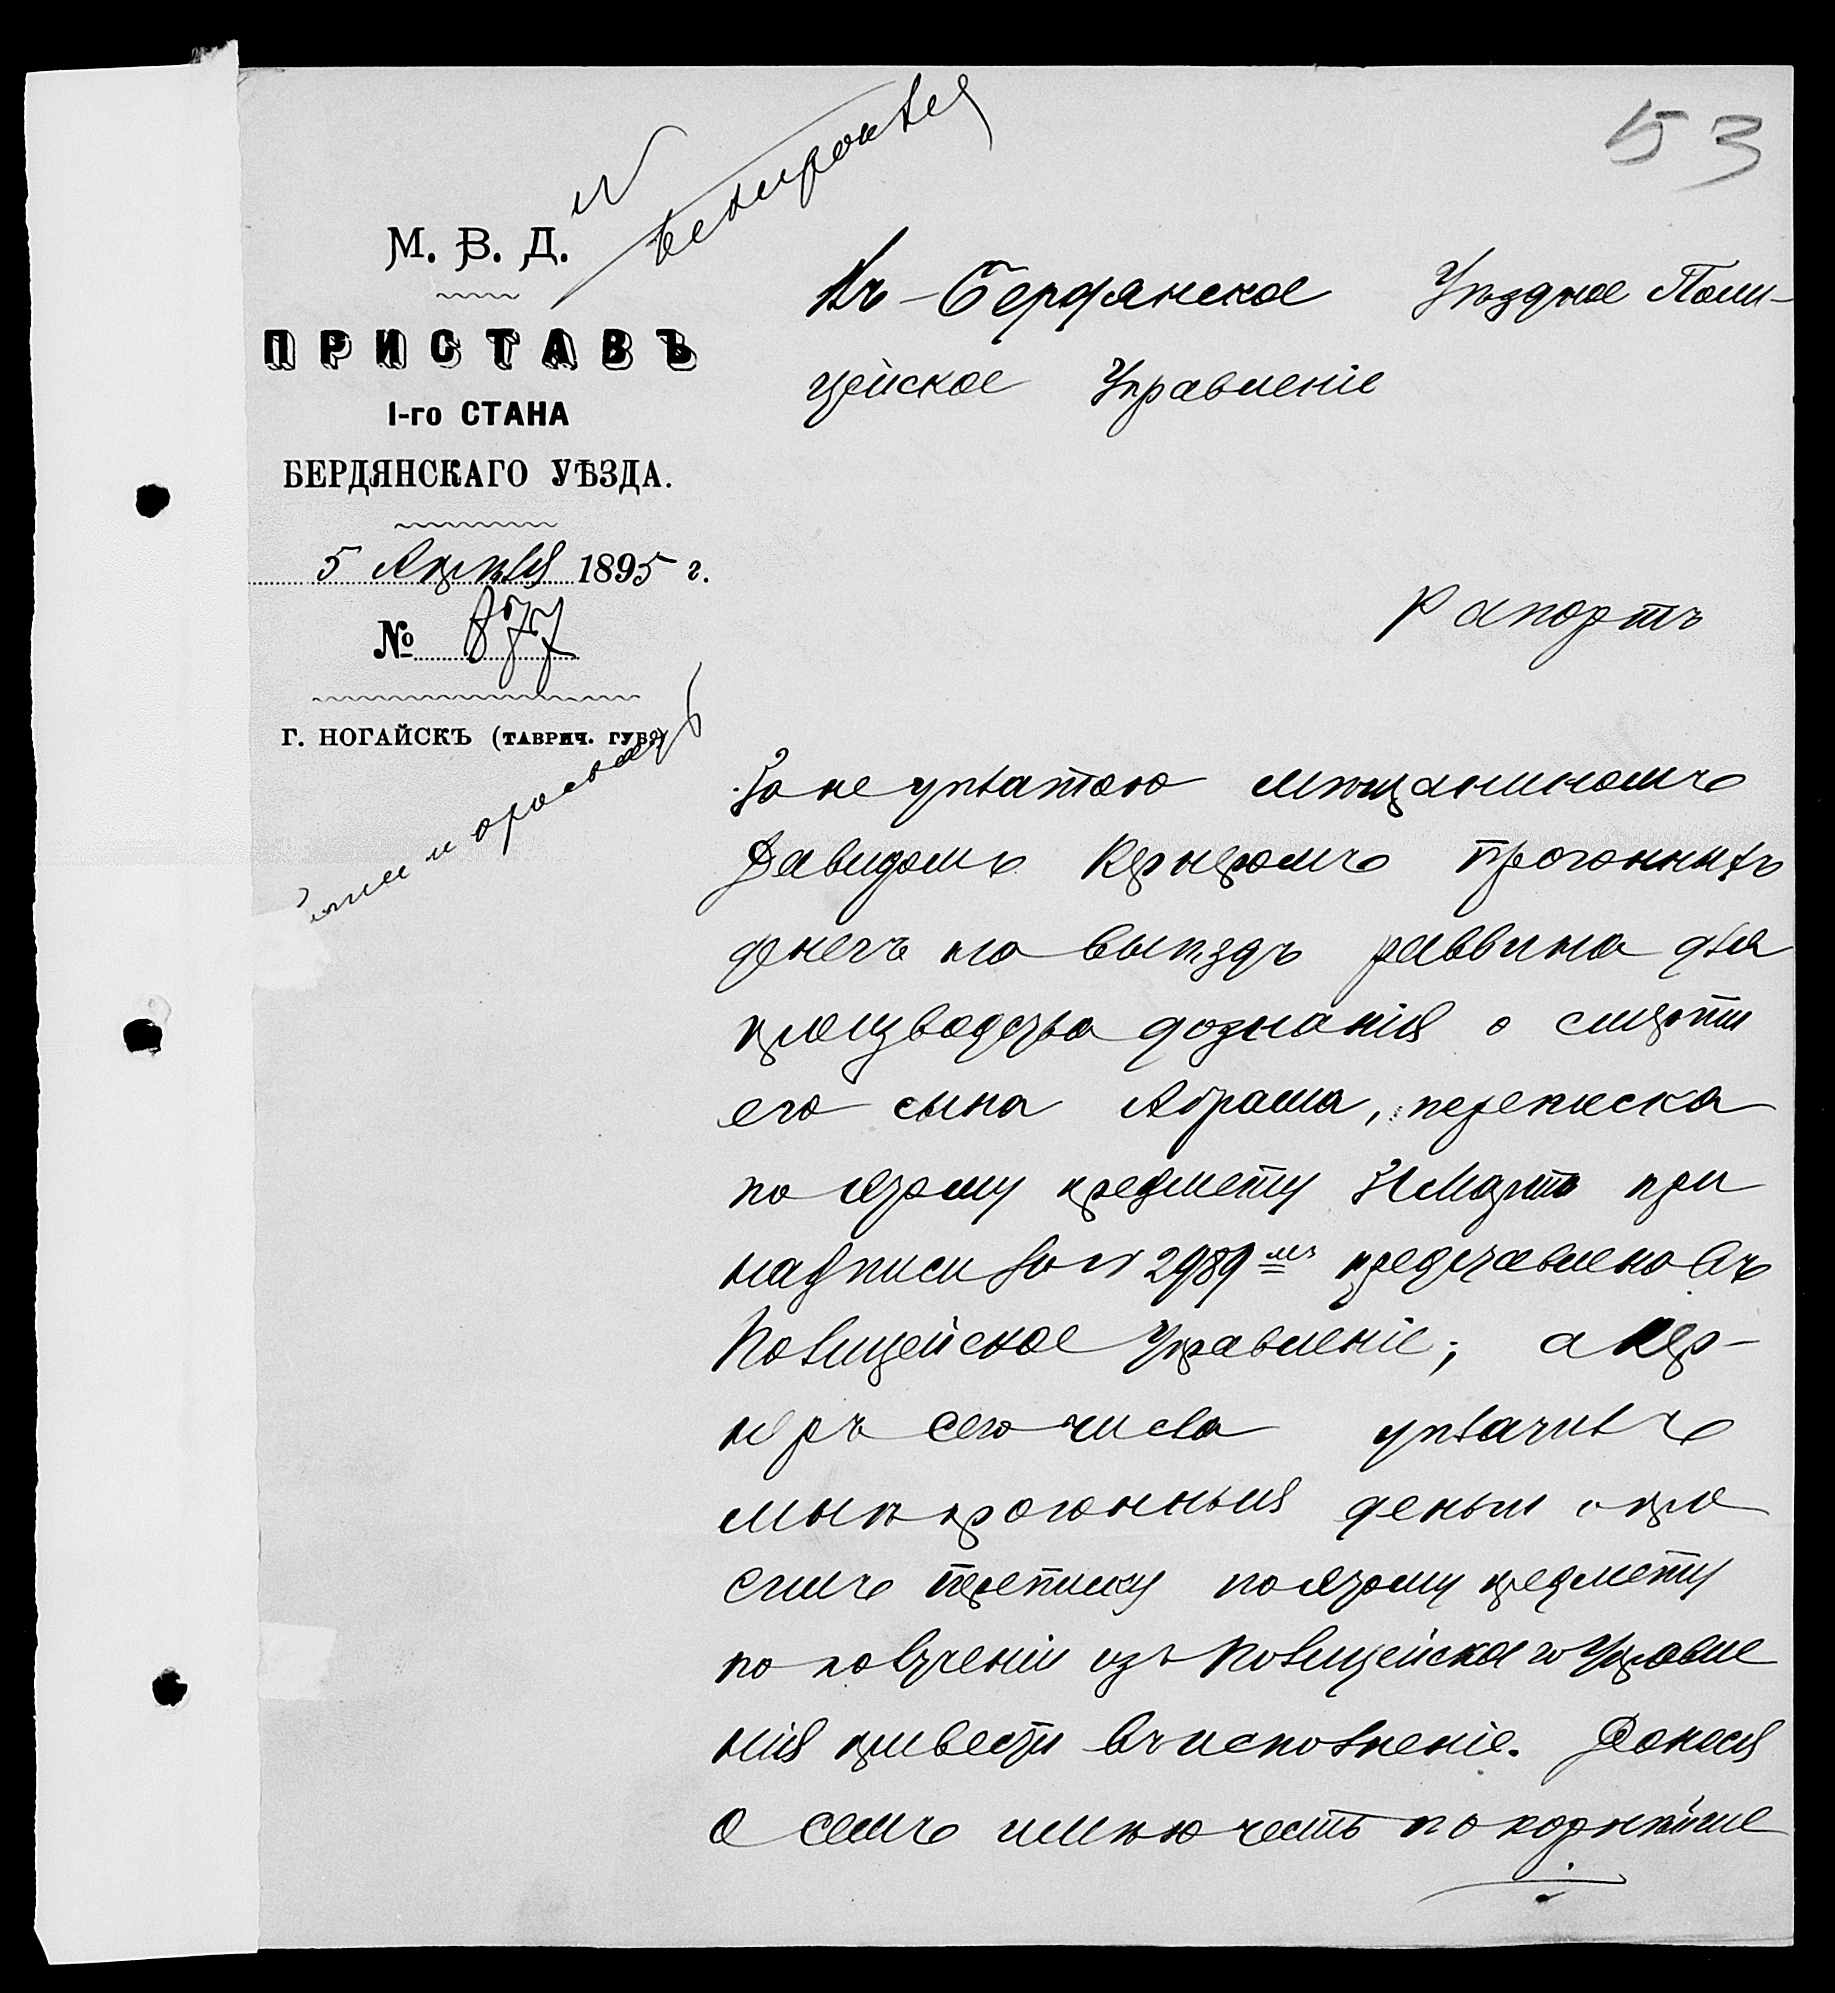 53
М. В. Д.
ПРИСТАВЪ
1-го СТАНА
БЕРДЯНСКАГО УѢЗДА.
5 Апрѣля 1895 г.
№ 877
Г. НОГАЙСКЪ (ТАВРИЧ. ГУБ.)
Въ Бердянское Уѣздное Поли-
цейское Управленіе
Рапортъ
За неуплатою мѣщаниномъ
Давидомъ Кернеромъ прогонныхъ
денегъ на выѣздъ раввина для
производства дознанія о смерти
его сына Абрама, переписка
по этому предмету 31 Марта при
надписи за № 2989мъ представлена въ
Полицейское Управленіе; а Кер-
неръ сего числа уплатилъ
мнѣ прогонныя деньги и про
силъ переписку по этому предмету
по полученіи изъ Полицейскаго Управле
нія привести въ исполненіе. Донося
о семъ имѣю честь покорнѣйше